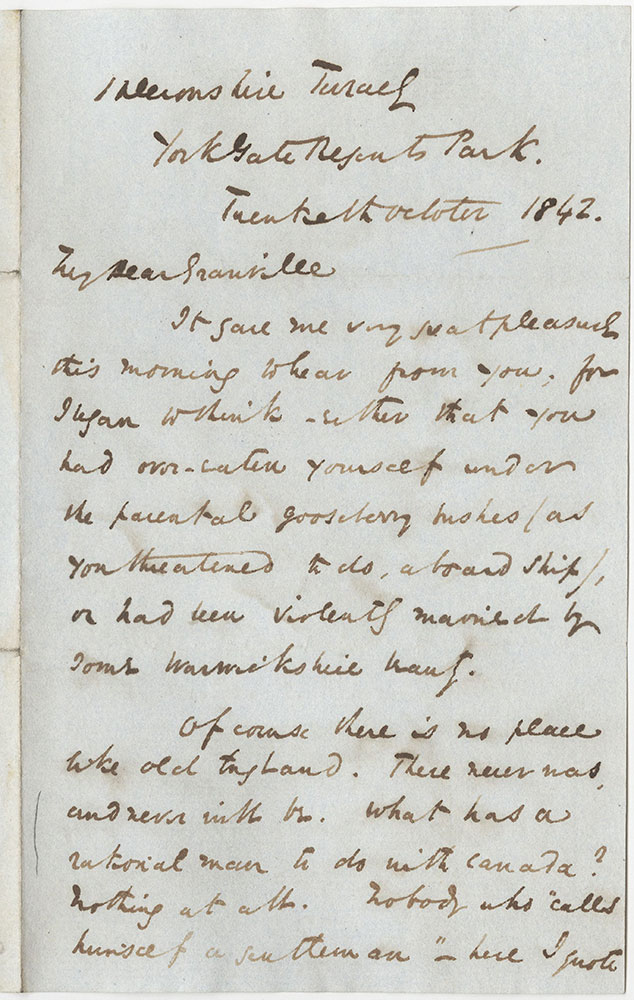 1 Devonshire Terrace
York Gate Regents Park.
Twentieth October 1842.
My Dear Granville
It gave me very great pleasure
this morning to hear from you, for
I began to think either that you
had over-eaten yourself under
the parental gooseberry bushes (as
you threatened to do, aboard ship),
or had been violently married by
some Warwickshire beauty.
Of course there is no place
like old England. There never was,
and never will be. What has a
rational man to do with Canada?
Nothing at all. Nobody who "calls
himself a gentleman" – here I quote